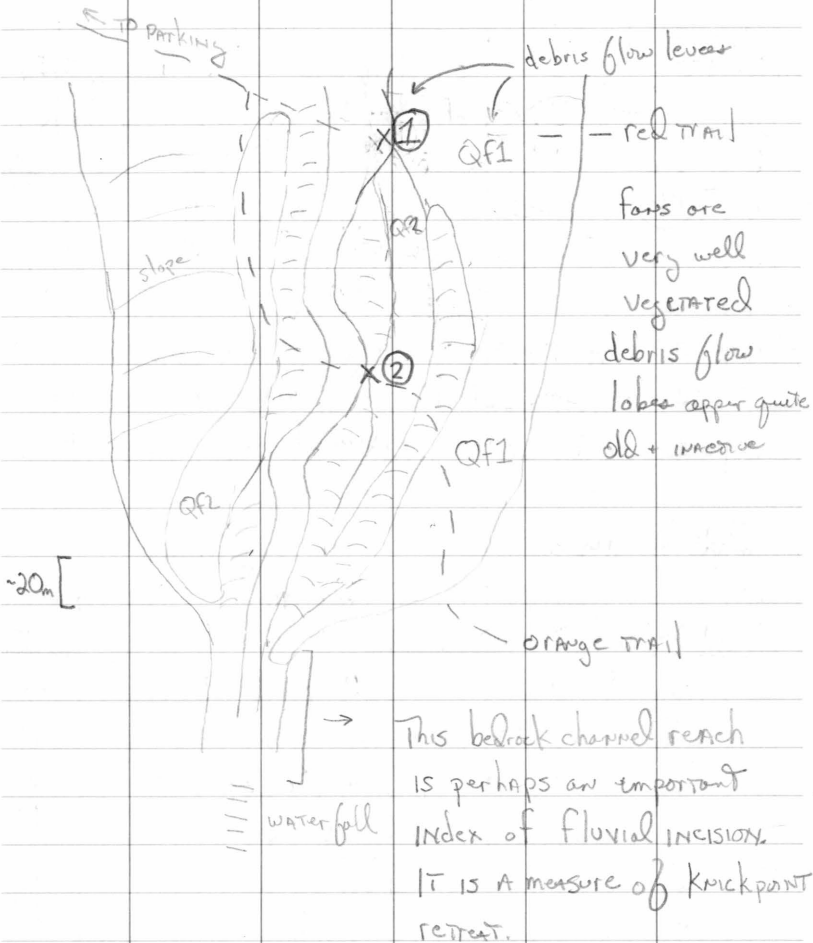 TO PARKING
debris flow levees
1
Qf1
red TRAIL
fans are
very well
vegetated
debris flow
lobes apper quite
old + inactive
slope
Qf2
2
Qf1
Qf2
~20m
orange TRAIL
This bedrock channel reach
is perhaps an important
index of fluvial incision.
It is a measure of knickpoint
retreat.
waterfall